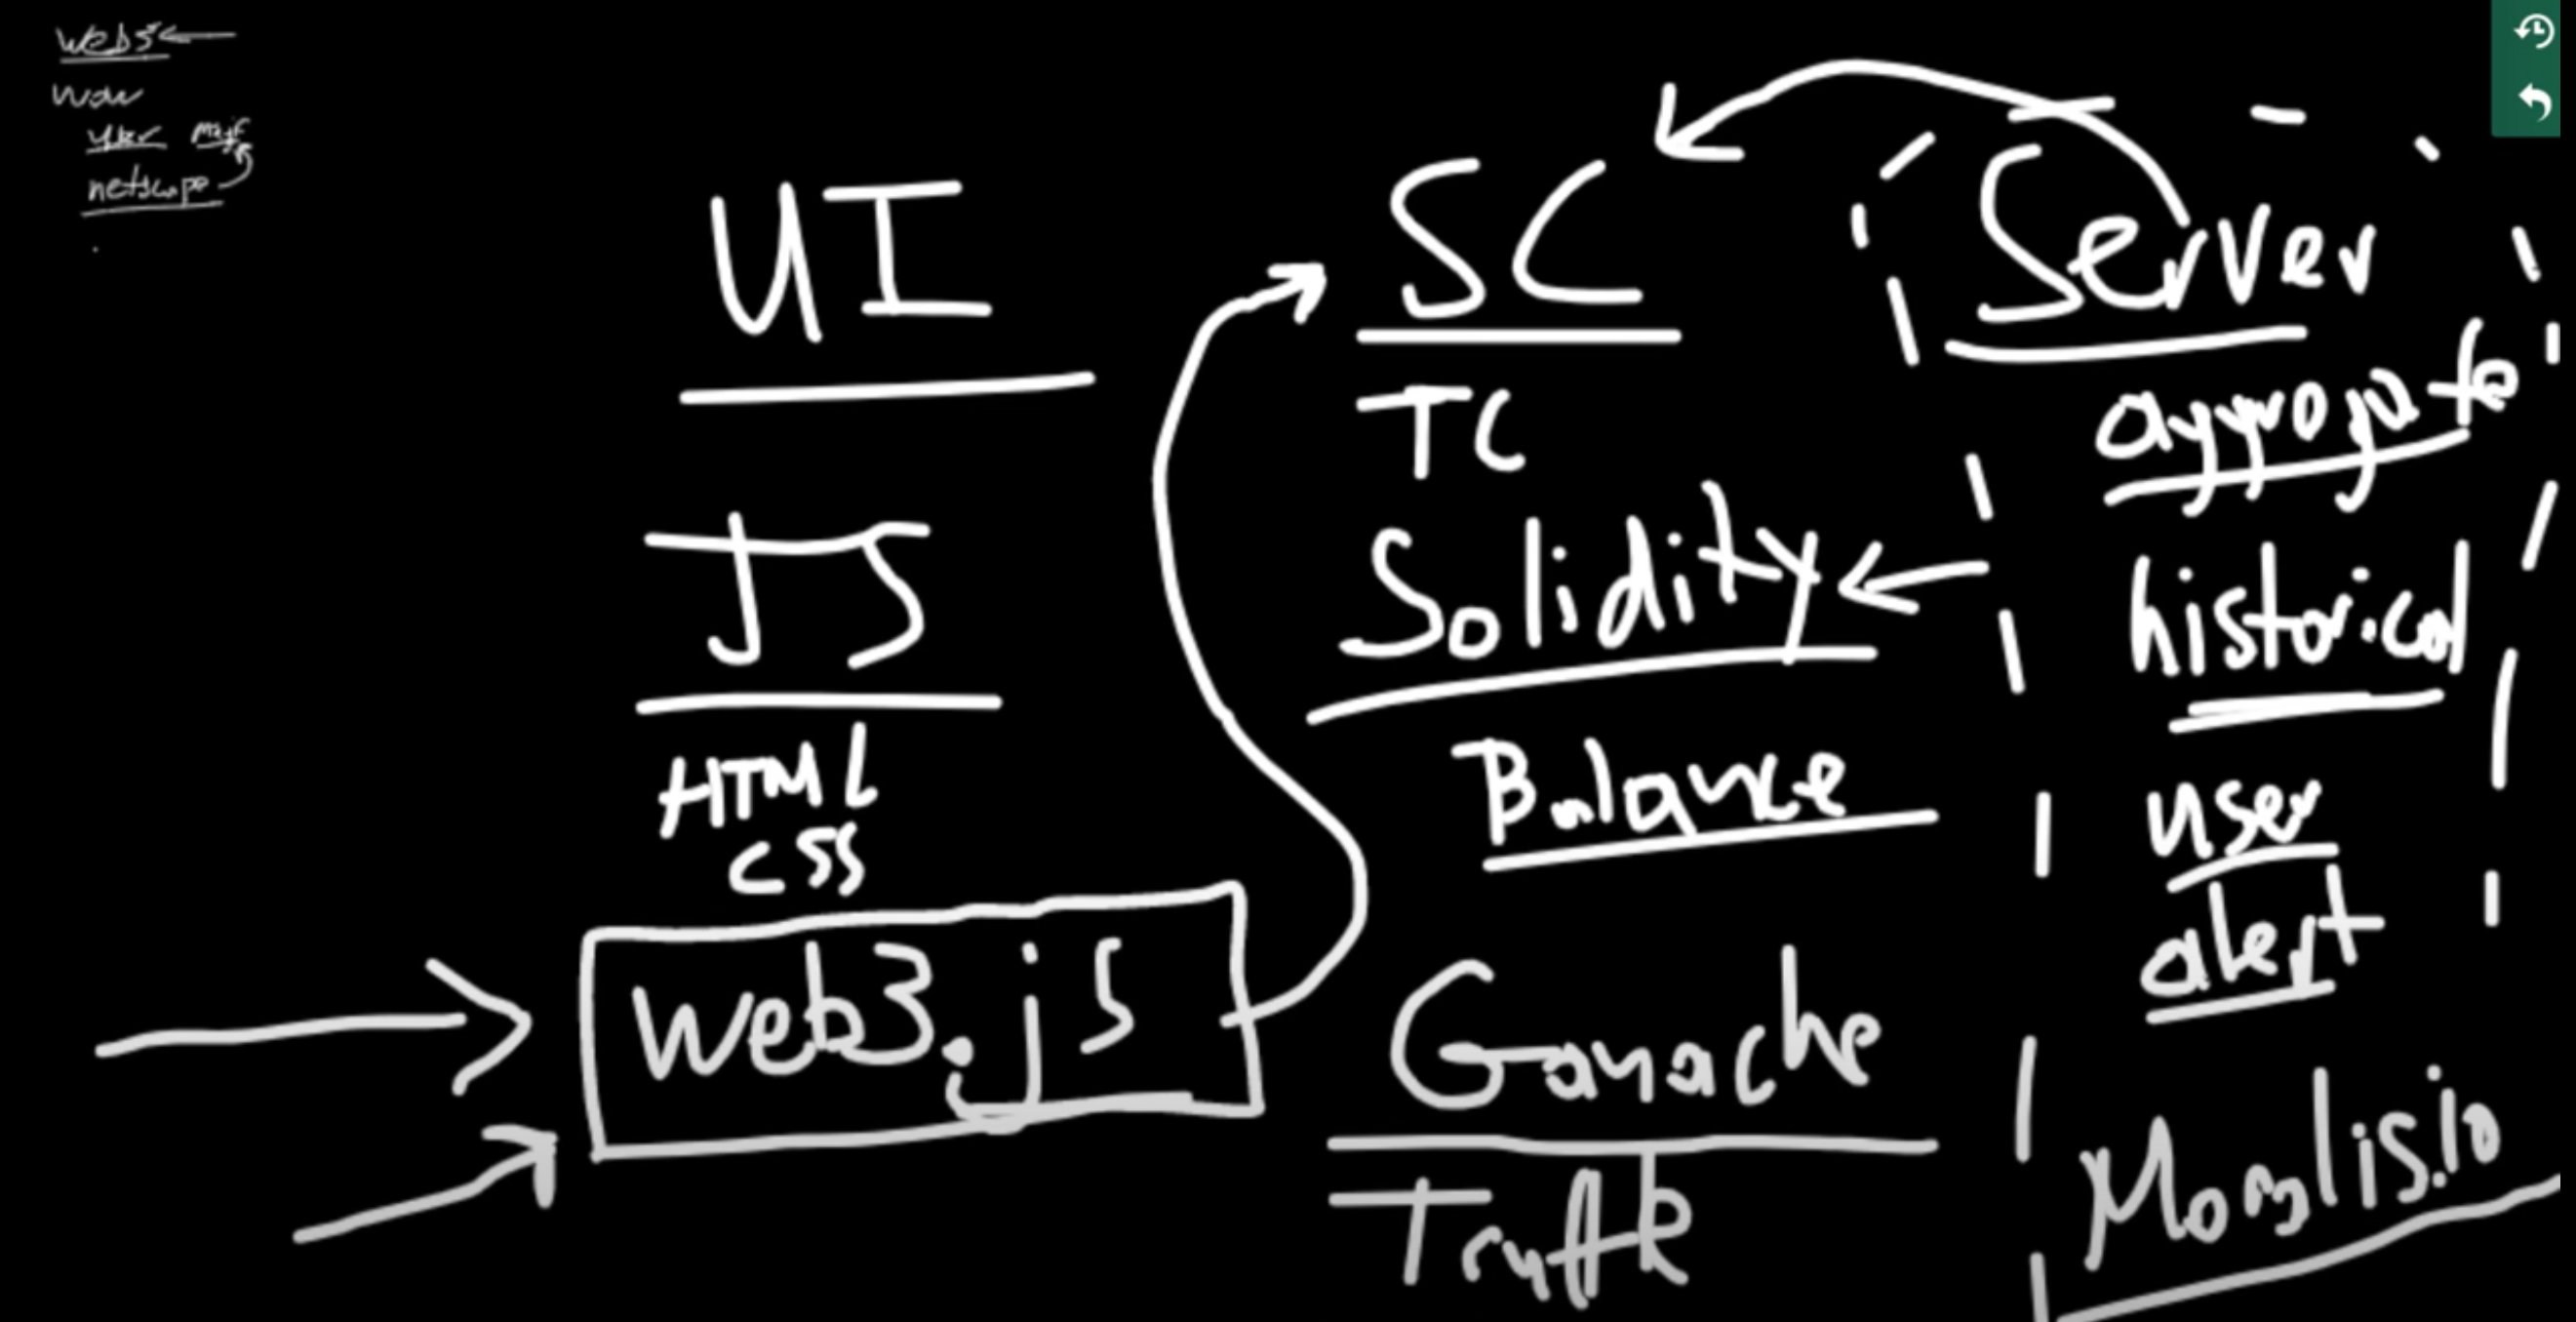 web3
wow
netscape
UI
JS
HTML
CSS
web3.js
SC
TC
Solidity
Balance
Ganache
Truffle
Server
aggregate
historical
user
alert
Moralis.io